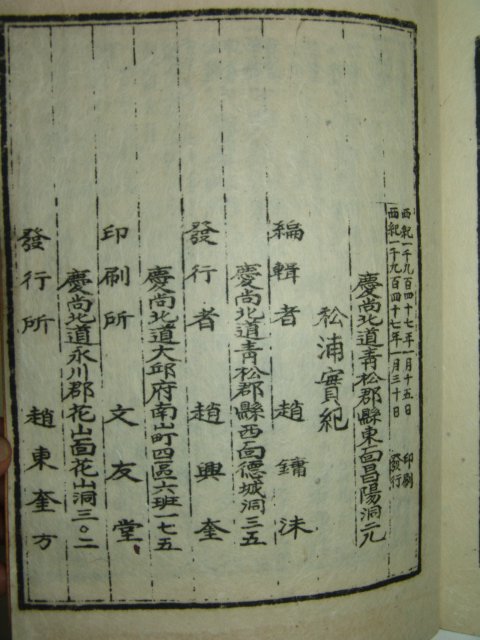 西紀一千九百四十七年一月十五日 印刷
西紀一千九百四十七年一月三十日 發行
慶尚北道靑松郡縣東面昌陽洞二九
松浦實紀
編輯者 趙鏞洙
慶尚北道靑松郡縣西面德城洞三五
發行者 趙興奎
慶尚北道大邱府南山町四區六班一七五
印刷所 文友堂
慶尚北道永川郡花山面花山洞三〇二
發行所 趙東奎方